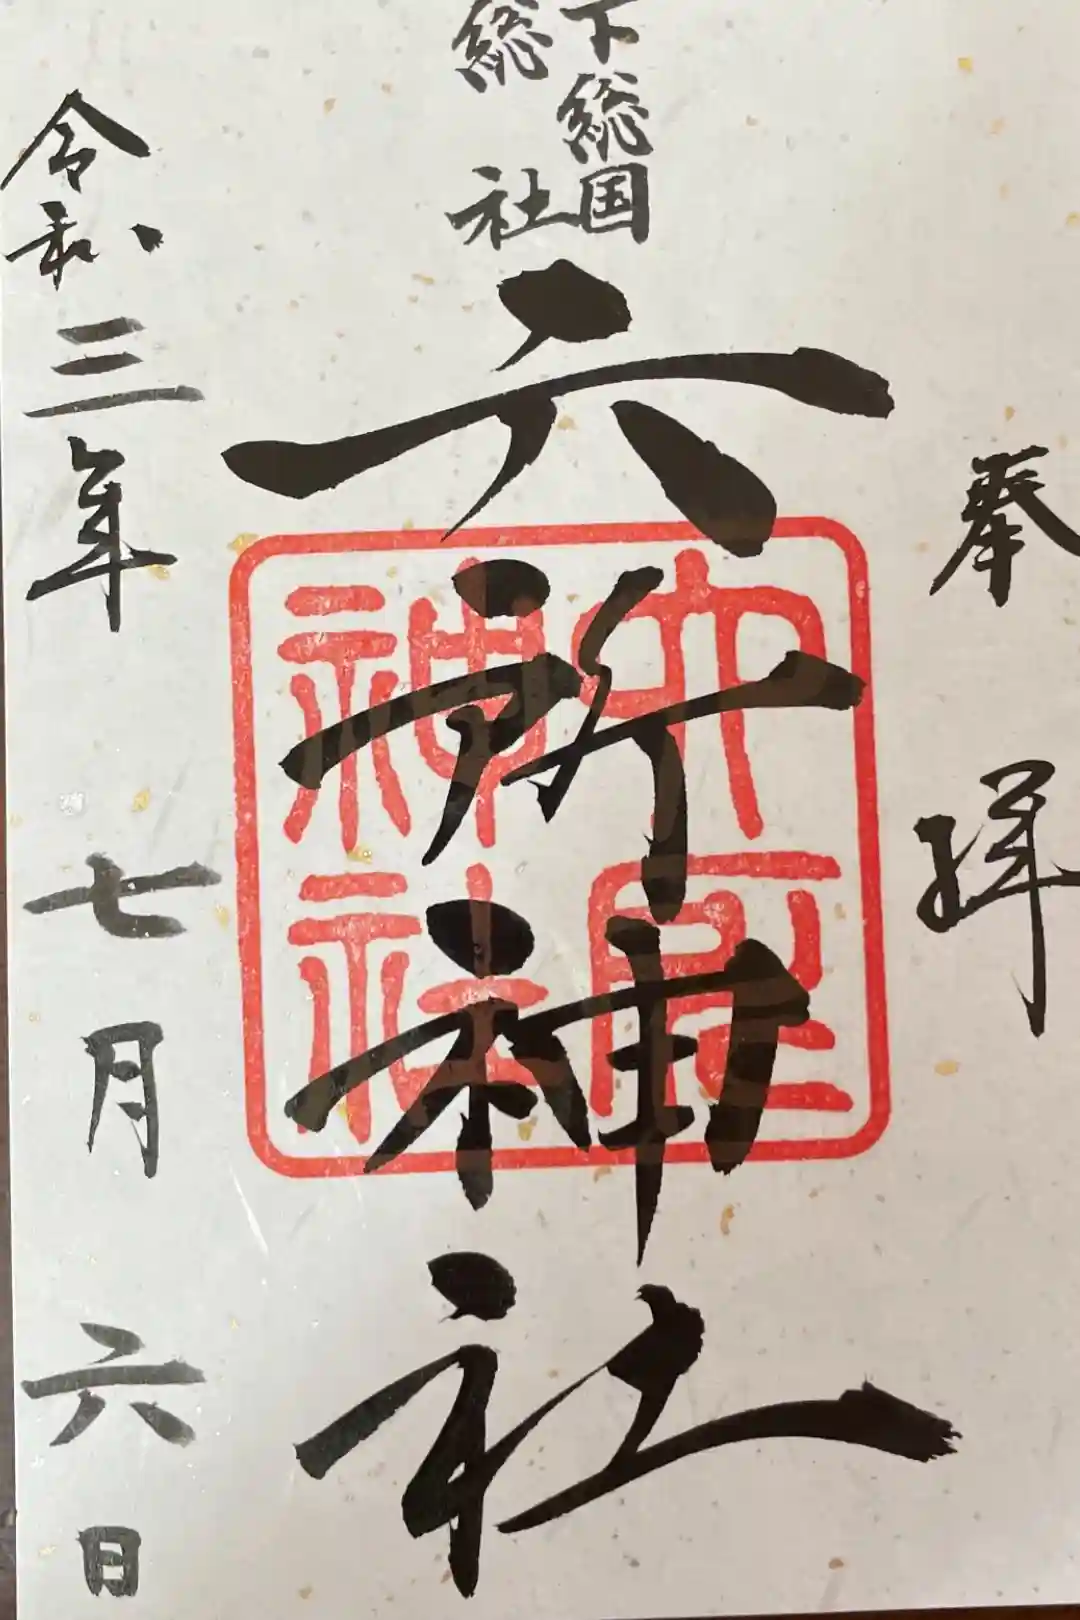 奉拝
下総国
総社
六所神社
六所
神社
令和三年七月六日